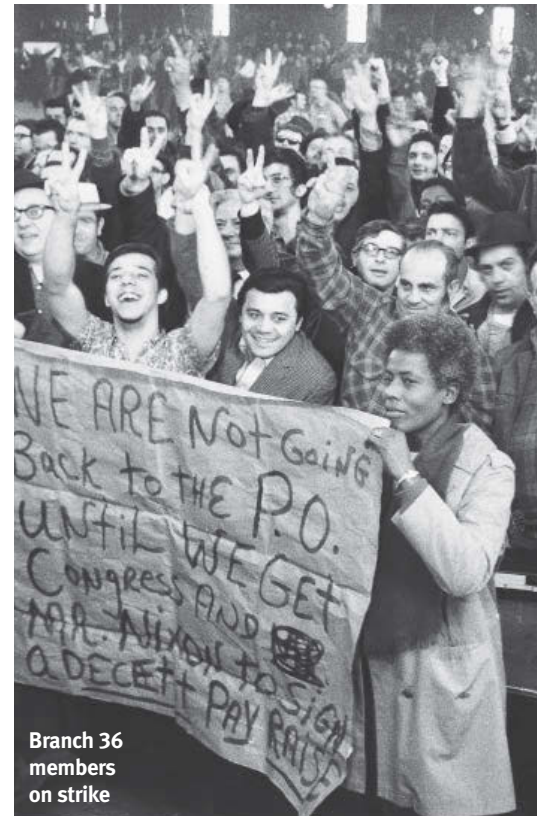 WE ARE Not GoiNG
Back to tHE P.O.
UNtiL WE GEt
CoNgRESS AND
MR. NiXON to SiGN
a DECEtt PAY RAISE
Branch 36
members
on strike